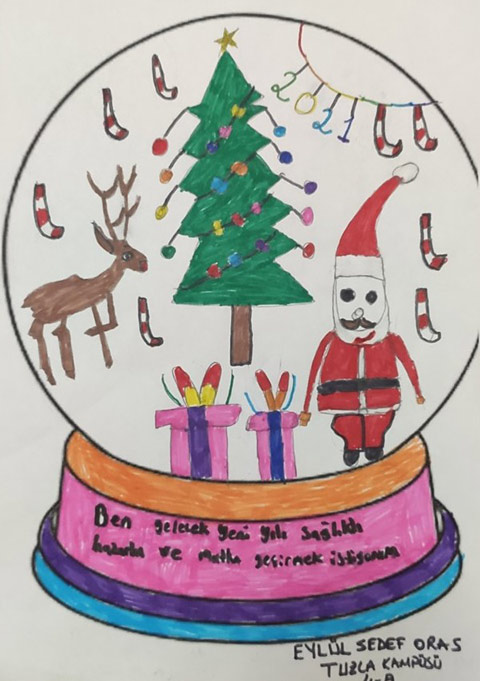 2021
Ben gelecek yeni yılı sağlıklı
huzurlu ve mutlu geçirmek istiyorum
EYLÜL SEDEF ORAS
TUZLA KAMPÜSÜ